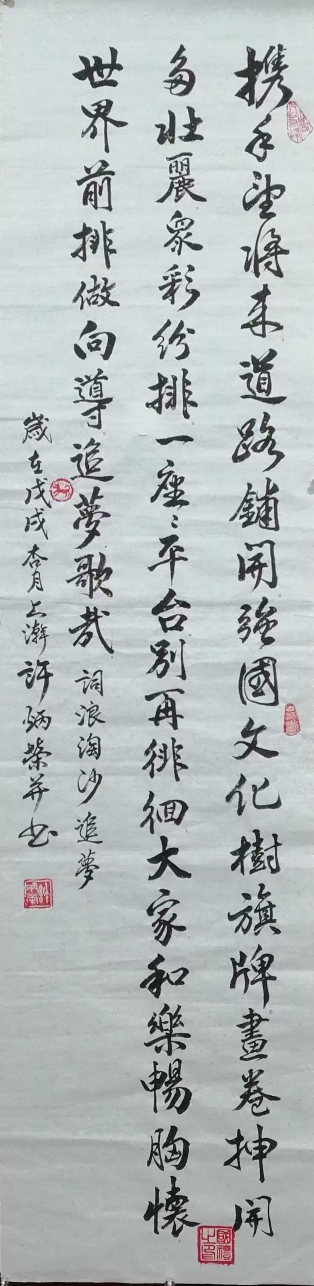 携手望将来道路鋪開強國文化樹旗牌畫卷抻開
多壯麗衆彩紛排一座座平台別再徘徊大家和樂暢胸懷
世界前排做向導追夢歌哉 詞浪淘沙追夢
歲在戊戌杏月上澣許炳榮并书